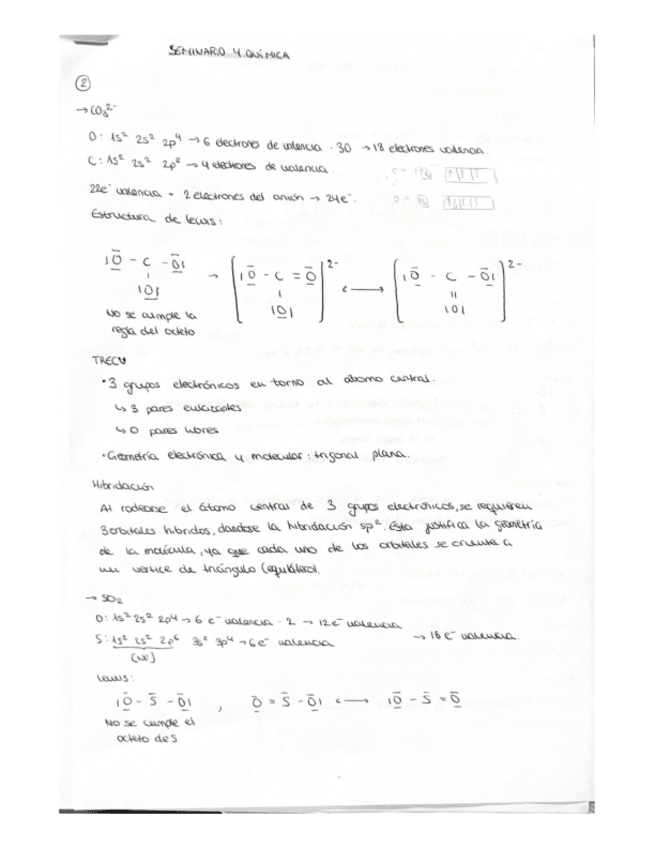 SEMINARIO 4. QUÍMICA
②
→ CO₃²⁻
O: 1s² 2s² 2p⁴ → 6 electrones de valencia · 3O → 18 electrones valencia.
C: 1s² 2s² 2p² → 4 electrones de valencia.
22e⁻ valencia + 2 electrones del anión → 24e⁻.
Estructura de Lewis:
|O̲̅ - C - O̲̅| → [|O̲̅ - C = O̲̅]²⁻ ⟷ [|O̲̅ - C - O̲̅|]²⁻
| | ||
|O̲| |O̲| |O|
No se cumple la
regla del octeto
TRECV
· 3 grupos electrónicos en torno al átomo central.
↳ 3 pares enlazantes
↳ 0 pares libres
· Geometría electrónica y molecular: trigonal plana.
Hibridación
Al rodearse el átomo central de 3 grupos electrónicos, se requieren
3 orbitales híbridos, dandose la hibridación sp². Esta justifica la geometría
de la molécula, ya que cada uno de los orbitales se orienta a
un vertice de triángulo (equilátero).
→ SO₂
O: 1s² 2s² 2p⁴ → 6 e⁻ valencia · 2 → 12e⁻ valencia
S: 1s² 2s² 2p⁶ 3s² 3p⁴ → 6e⁻ valencia → 18 e⁻ valencia.
[Ne]
Lewis:
|O̲̅ - S̅ - O̲̅| , O̲̅ = S̅ - O̲̅| ⟷ |O̲̅ - S̅ = O̲̅
No se cumple el
octeto de S